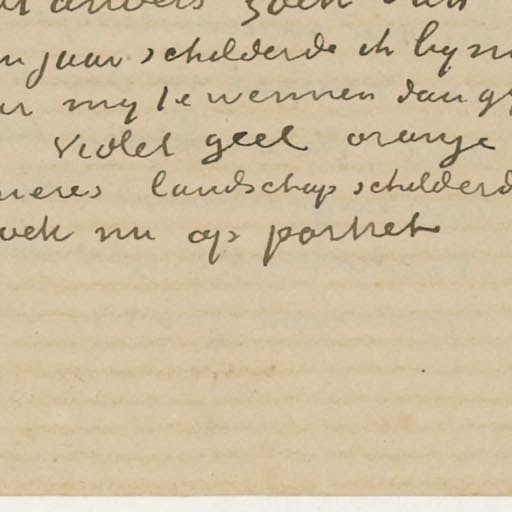 n jaar schilderde ik byn
ar my te wennen dan gr
violet geel oranje
nieres landschap schilderd
oek nu op portret